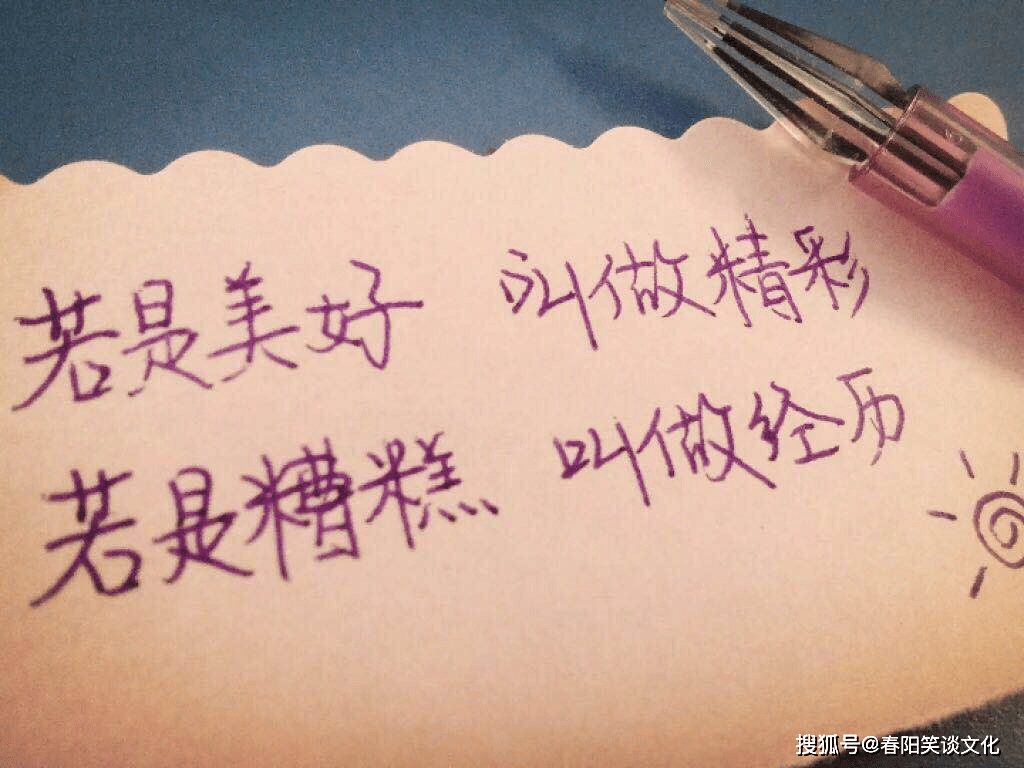 若是美好 叫做精彩
若是糟糕 叫做经历
搜狐号@春阳笑谈文化